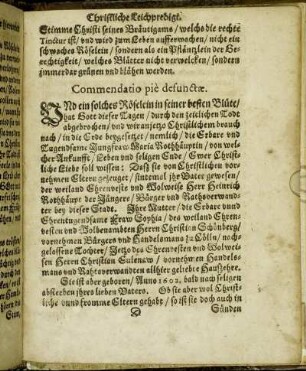 Christliche Leichpredigt.
Stimme Christi seines Bräutigams / welchs die rechte
Tinctur ist / und wird zum Leben aufferwachen / nicht ein
schwaches Röselein / sondern als ein Pflänzlein der Ge-
rechtigkeit / welches Blätter nicht verwelcken / sondern
immerdar grünen und blühen werden.
Commendatio piè defunctæ.
UNd ein solches Röselein in seiner besten Blüte /
hat Gott dieser Tagen / durch den zeitlichen Todt
abgebrochen / und wir anjetzo Christlichem brauch
nach / in die Erde beygesetzet / nemlich / die Erbare und
Tugendsame Jungfraw Maria Rothhäuptin / von wel-
cher Ankunfft / Leben und seligen Ende / Ewer Christ-
liche Liebe soll wissen: Daß sie von Christlichen vor-
nehmen Eltern gezeuget / sintemal ihr Vater gewesen /
der weiland Ehrenveste und Wolweise Herr Heinrich
Rothhäupt der Jünger / Bürger und Rathsverwand-
ter bey dieser Stade. Ihre Mutter / die Erbare und
Ehrentugendsame Fraw Sophia / des weiland Ehren-
vesten und Wolbenambten Herrn Christian Schönberg /
vornehmen Bürgers und Handelsmans zu Cölln / nach-
gelassene Tochter / Jetzo des Ehrenvesten und Wolwei-
sen Herrn Christian Eulenaw / vornehmen Handels-
mans und Rahtsverwandten allhier geliebte Haußehre.
Sie ist aber geboren / Anno 1602. bald nach seligen
absterben ihres lieben Vaters. Ob sie aber wol Christ-
liche und fromme Eltern gehabt / so ist sie doch auch in
Sünden